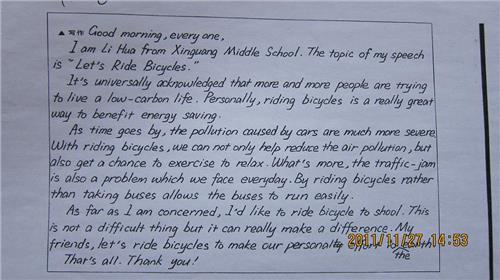 ▲写作 Good morning, every one,
I am Li Hua from Xinguang Middle School. The topic of my speech
is "Let's Ride Bicycles."
It's universally acknowledged that more and more people are trying
to live a low-carbon life. Personally, riding bicycles is a really great
way to benefit energy saving.
As time goes by, the pollution caused by cars are much more severe.
With riding bicycles, we can not only help reduce the air pollution, but
also get a chance to exercise to relax. What's more, the traffic-jam
is also a problem which we face everyday. By riding bicycles rather
than taking buses allows the buses to run easily.
As far as I am concerned, I'd like to ride bicycle to shool. This
is not a difficult thing but it can really make a difference. My
friends, let's ride bicycles to make our personal
the
That's all. Thank you!
2011/11/27 14:53